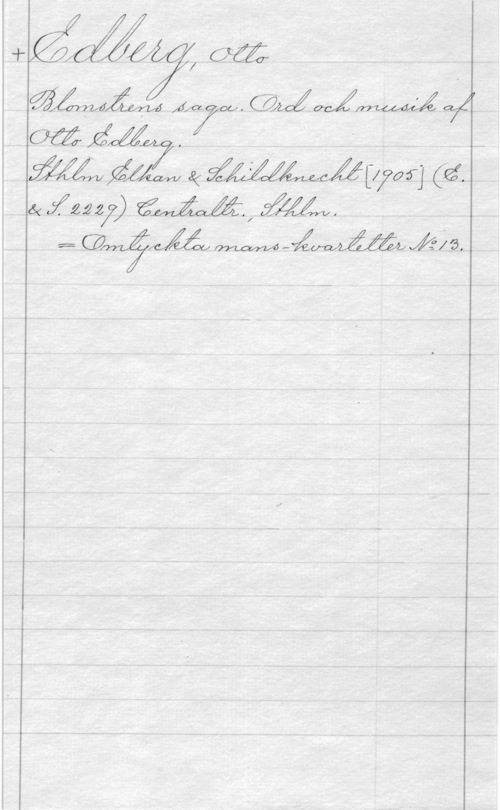 + Edberg, Otto
Blomstrens saga. Ord och musik af
Otto Edberg.
Sthlm Elkan & Schildknecht [1905] (E.
& S. 2229) Centraltr., Sthlm.
= Omtyckta mans-kvartetter № 13.